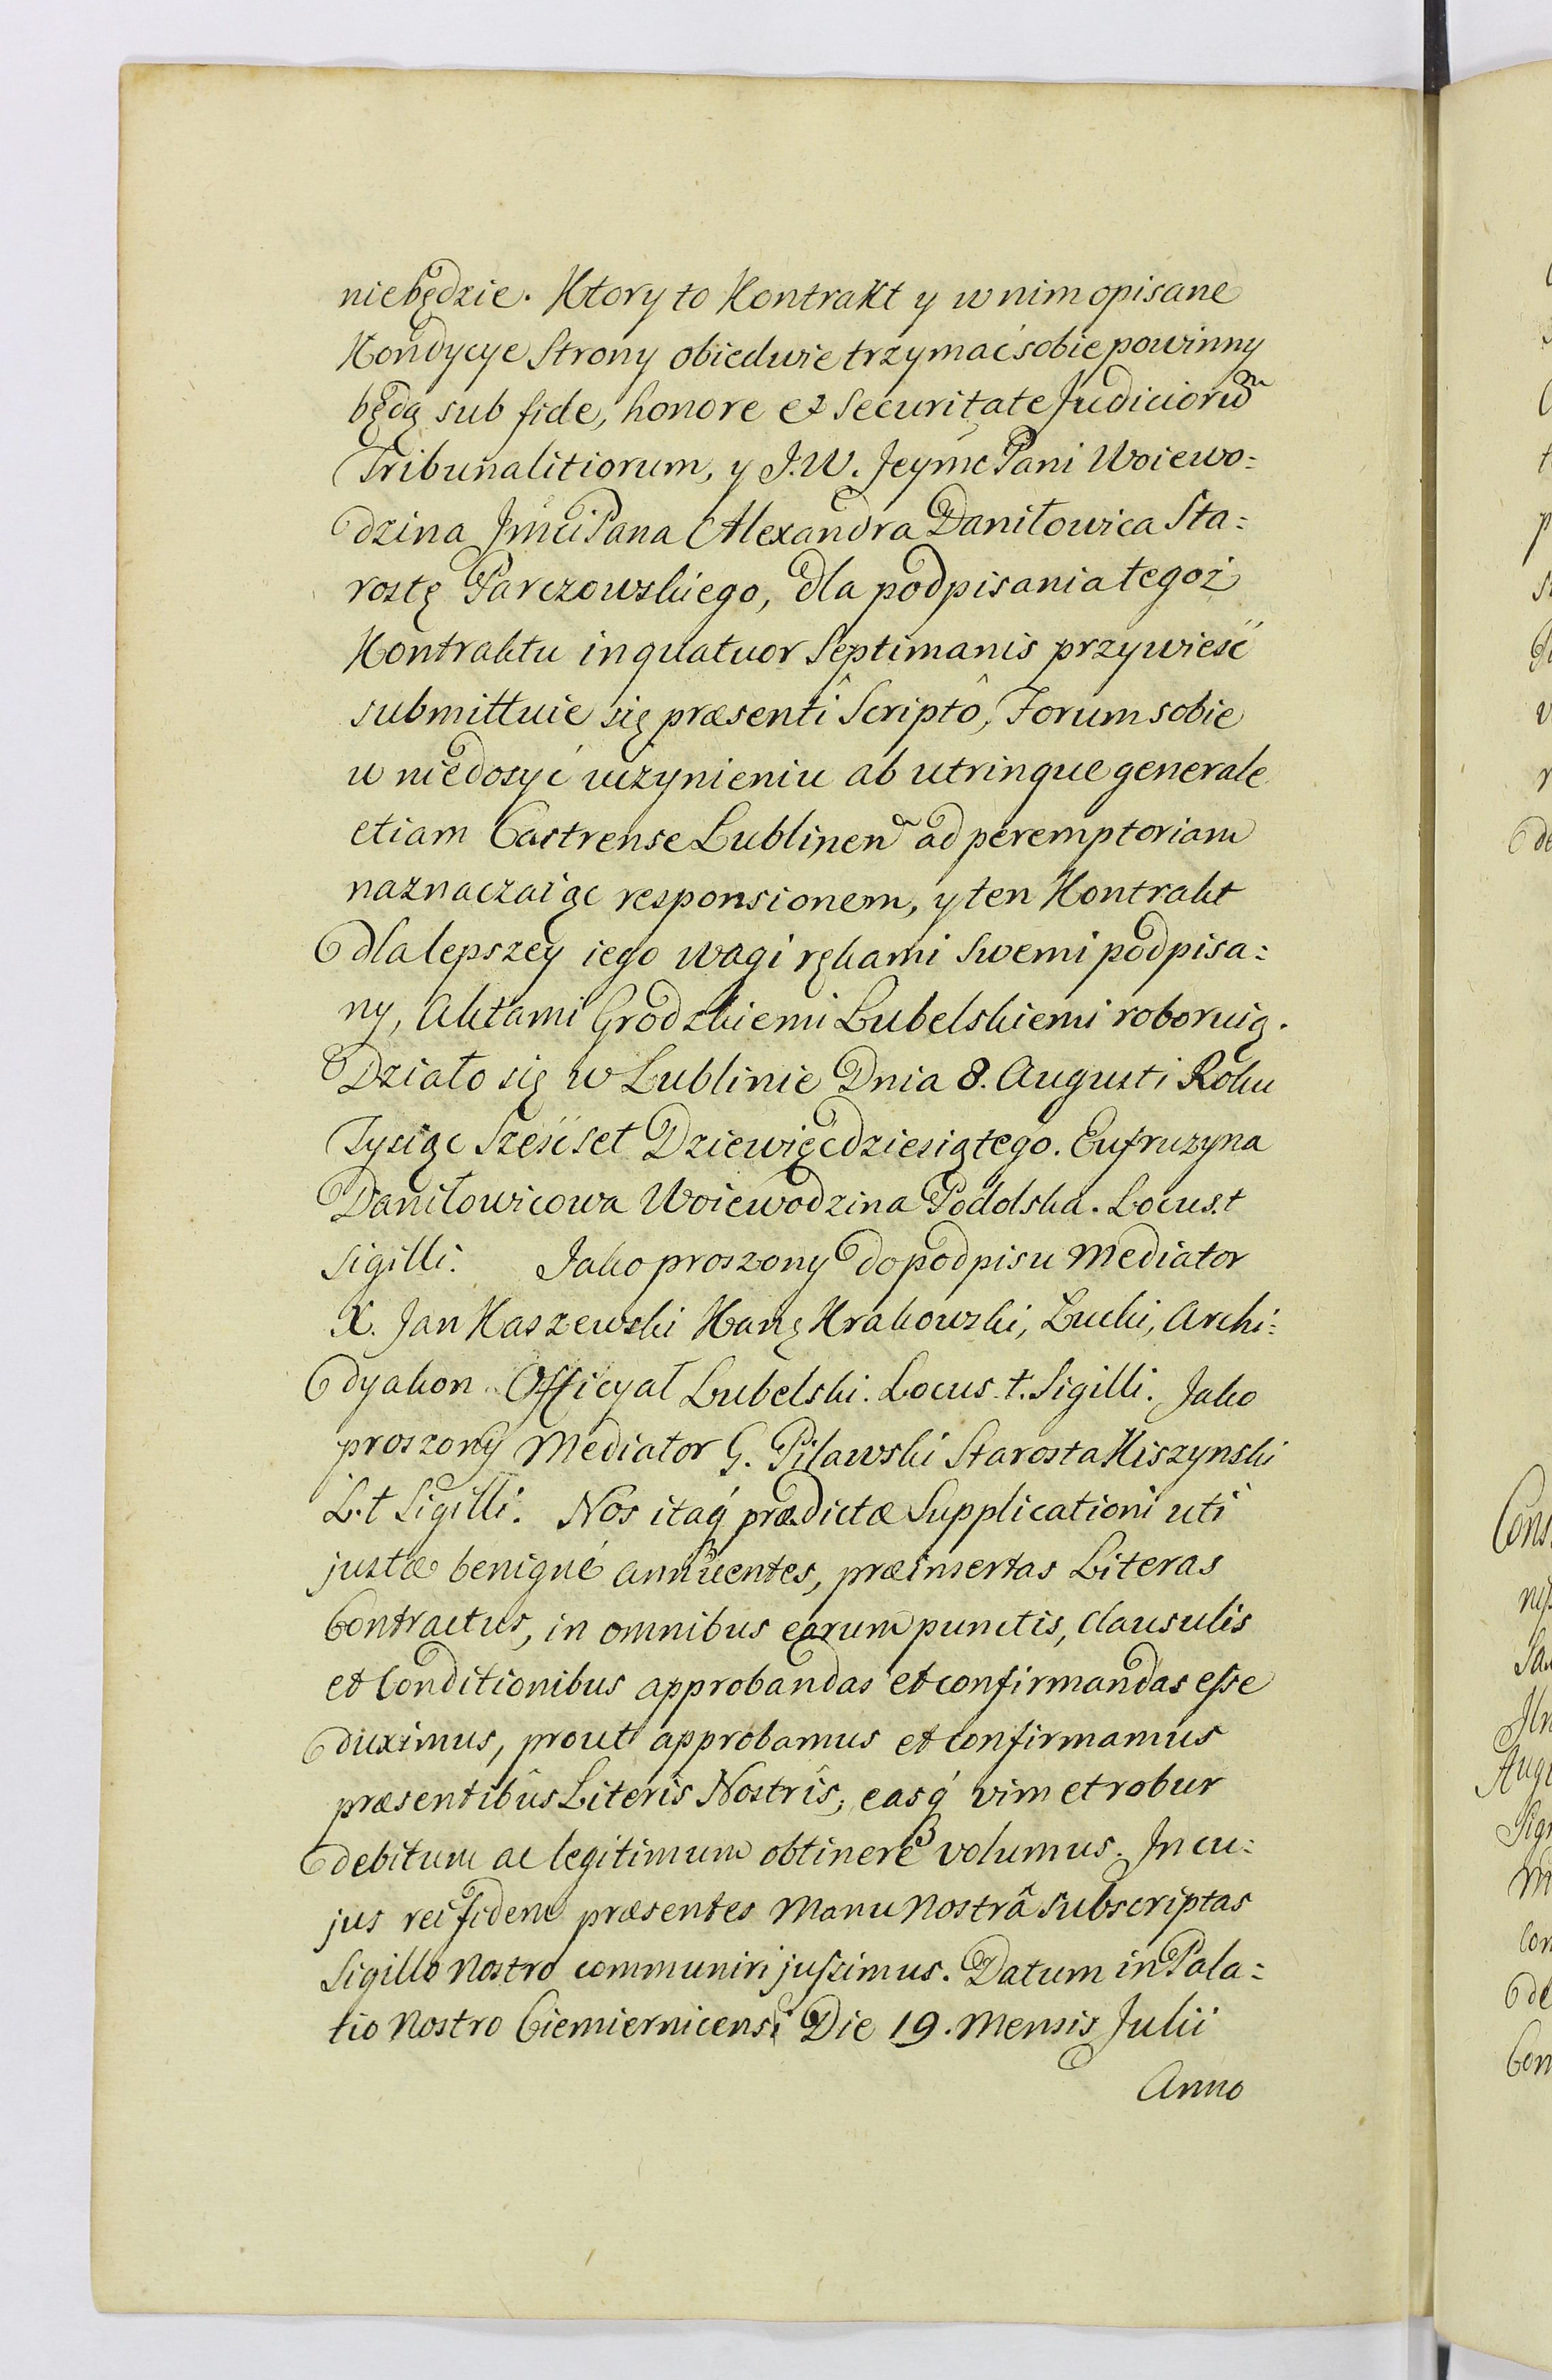 niebędzie. Ktory to Kontrakt y w nim opisane
Kondycye Strony obiedwie trzymać sobie powinny
będą sub fide, honore et Securitate Judiciorum
Tribunalitiorum, y J.W. Jeymć Pani Woiewo:
dzina Jmći Pana Alexandra Daniłowica Sta:
rostę Parczowskiego, dla podpisania tegoż
Kontraktu in quatuor Septimanis przywieść
submittuie się præsentî Scriptô, Forum sobie
w niedosyć uczynieniu ab utrinque generale
etiam Castrense Lublinen ad peremptoriam
naznaczaiąc responsionem, y ten Kontrakt
dla lepszey iego wagi rękami Swemi podpisa:
ny, Aktami Grodzkiemi Lubelskiemi roboruią.
Działo się w Lublinie Dnia 8. Augusti Roku
Tysiąc Sześćset Dziewięćdziesiątego. Eufruzyna
Daniłowicowa Woiewodzina Podolska. Locus. t
Sigilli. Jako proszony do podpisu Mediator
X. Jan Kaszewski Kang Krakowski, Łucki, Archi:
dyakon Officyał Lubelski. Locus. t. Sigilli. Jako
proszony Mediator G. Pilawski Starosta Kiszynski
L. t Sigilli. Nos itaq́ prædictæ Supplicationi uti
justæ benigné annuentes, præinsertas Literas
Contractus, in omnibus earum punctis, Clausulis
et Conditionibus approbandas et confirmandas esse
duximus, prout approbamus et confirmamus
præsentibûs Literîs Nostrîs; easq́ vim et robur
debitum ac legitimum obtinere volumus. In cu:
jus rei fidem præsentes Manu Nostrâ Subscriptas
Sigillo Nostro communiri jussimus. Datum in Pala:
tio Nostro Ciemiernicensi Die 19. Mensis Julii
Anno